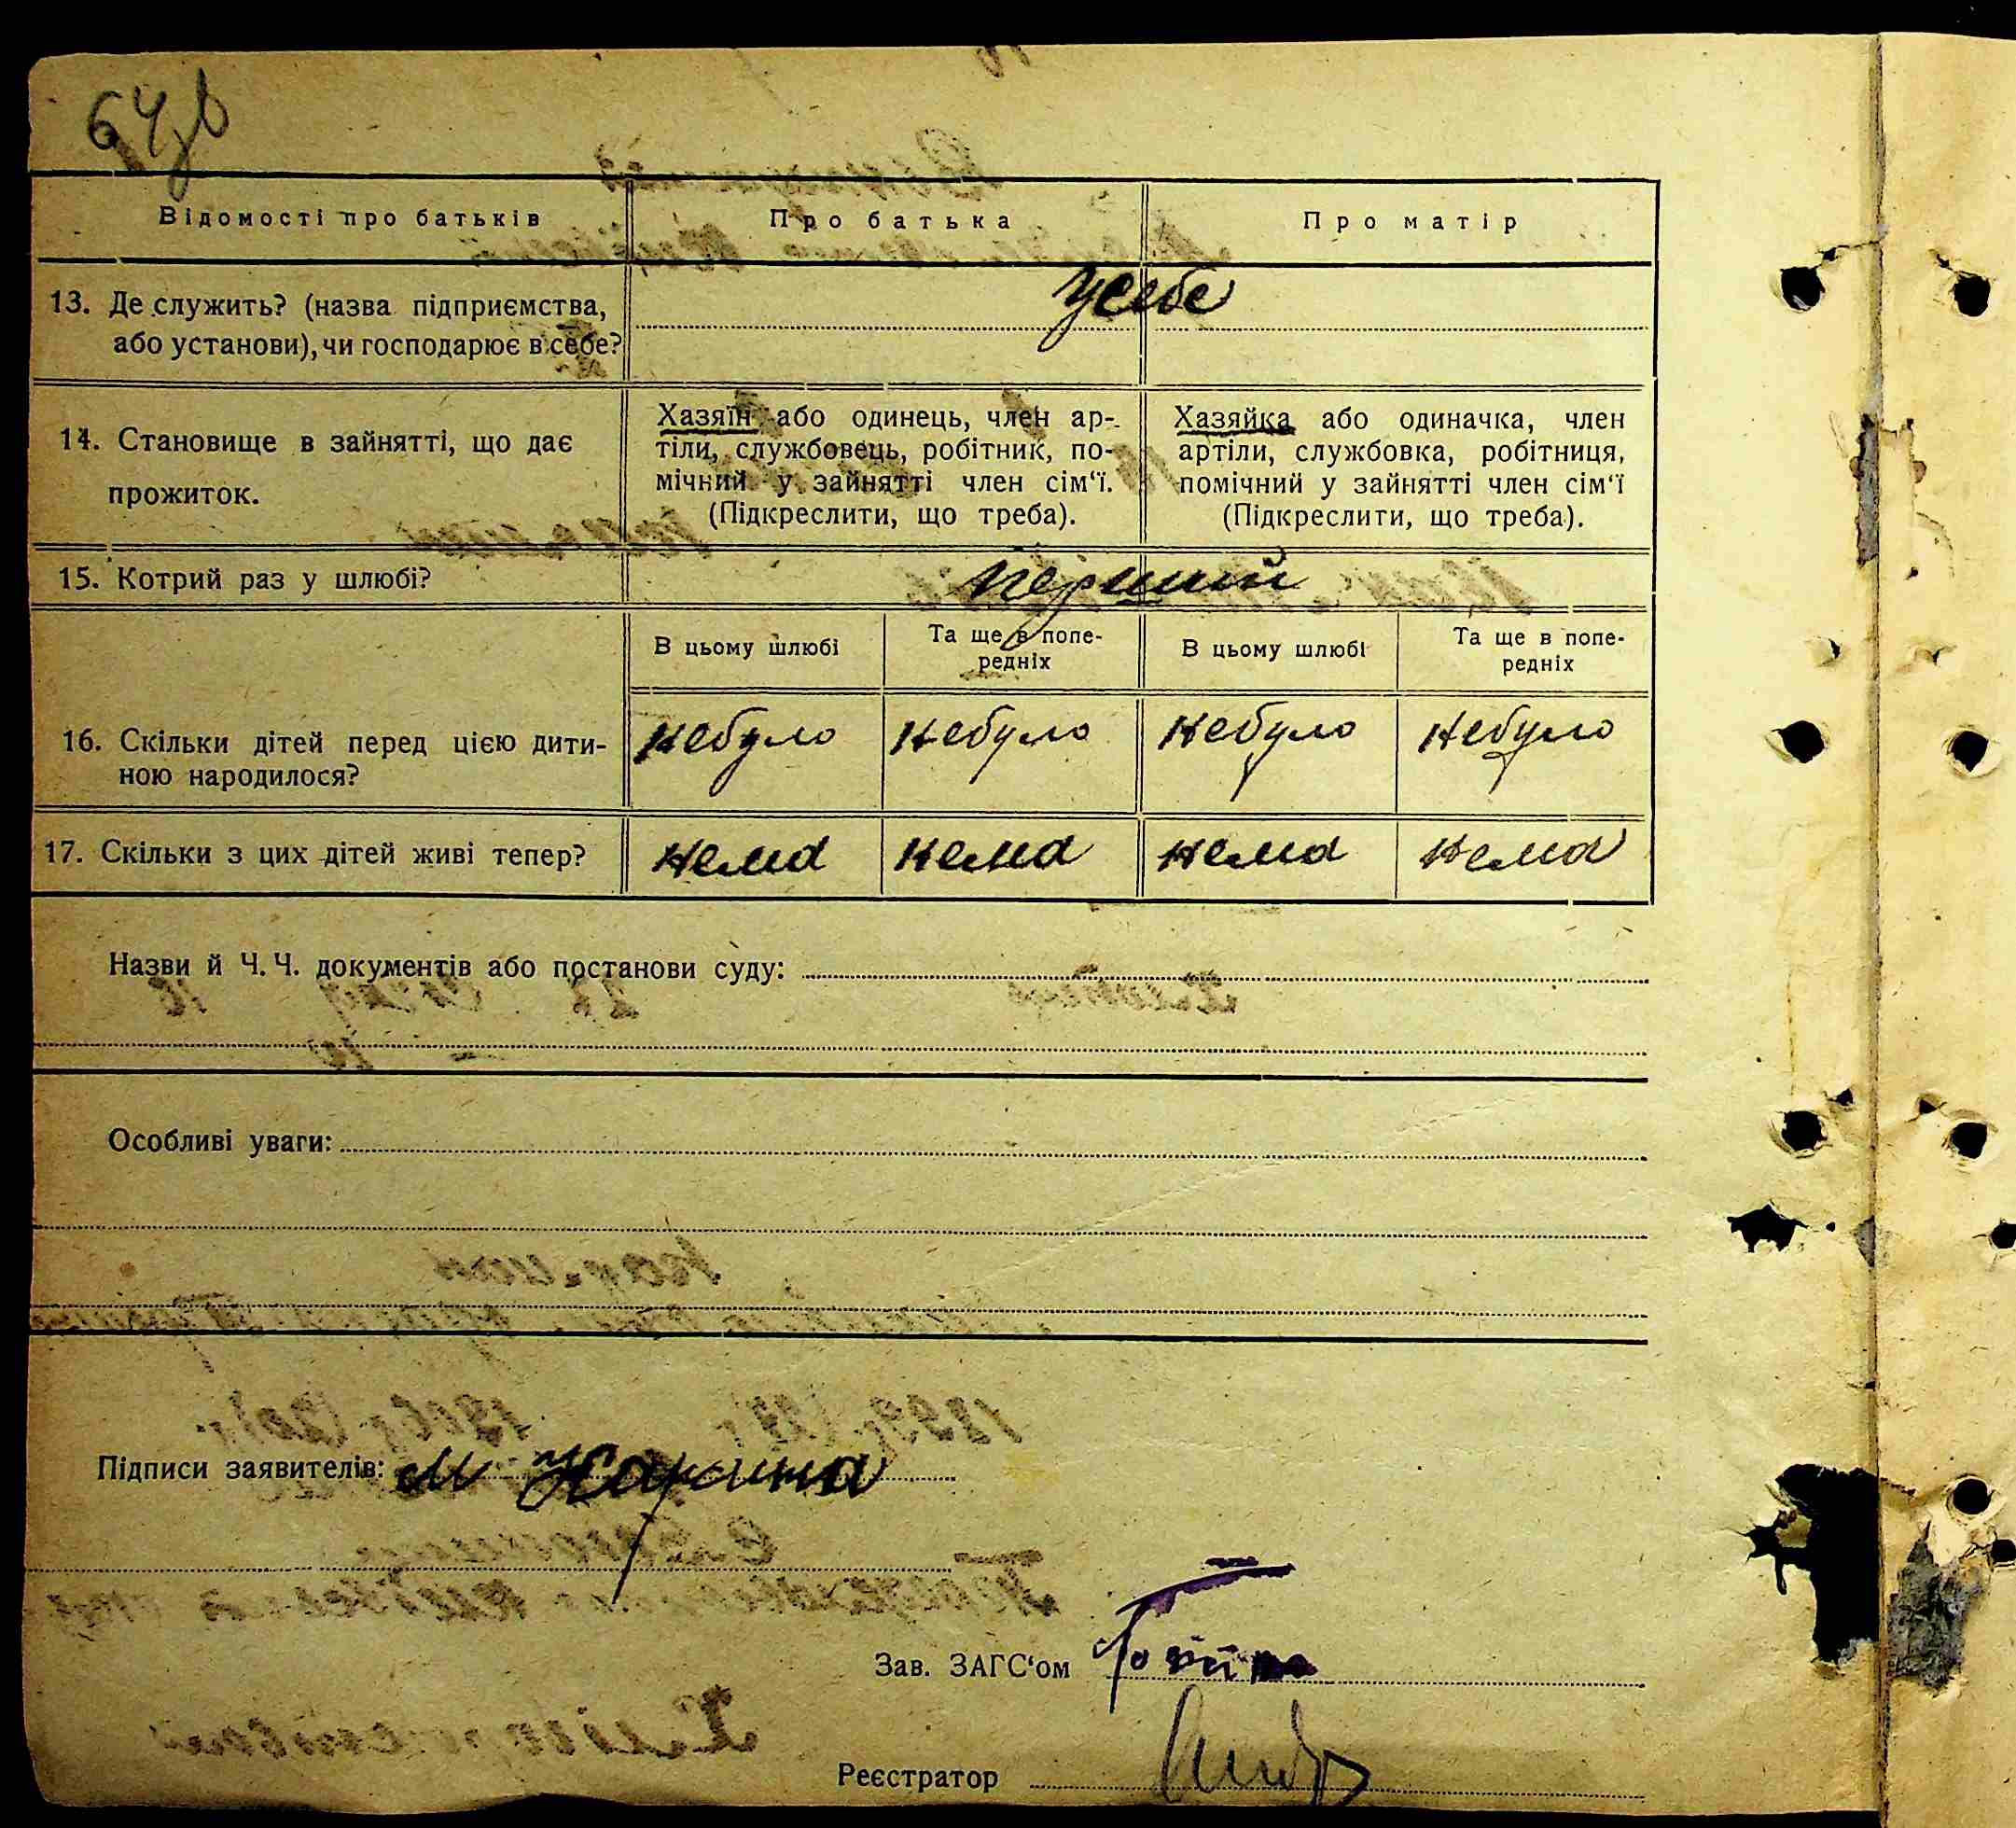 Відомості про батьків Про батька Про матір
13. Де служить? (назва підприємства,
або установи), чи господарює в себе?
усебе
14. Становище в зайнятті, що дає
прожиток.
Хазяїн або одинець, член ар-
тіли, службовець, робітник, по-
мічний у зайнятті член сім‘ї.
(Підкреслити, що треба).
Хазяйка або одиначка, член
артіли, службовка, робітниця,
помічний у зайнятті член сім‘ї
(Підкреслити, що треба).
15. Котрий раз у шлюбі? перший
В цьому шлюбі
Та ще в попе-
редніх
В цьому шлюбі
Та ще в попе-
редніх
16. Скільки дітей перед цією дити-
ною народилося?
небуло небуло небуло небуло
17. Скільки з цих дітей живі тепер? нема нема нема нема
Назви й Ч. Ч. документів або постанови суду:
Особливі уваги:
Підписи заявителів:
Зав. ЗАГС‘ом
Реєстратор